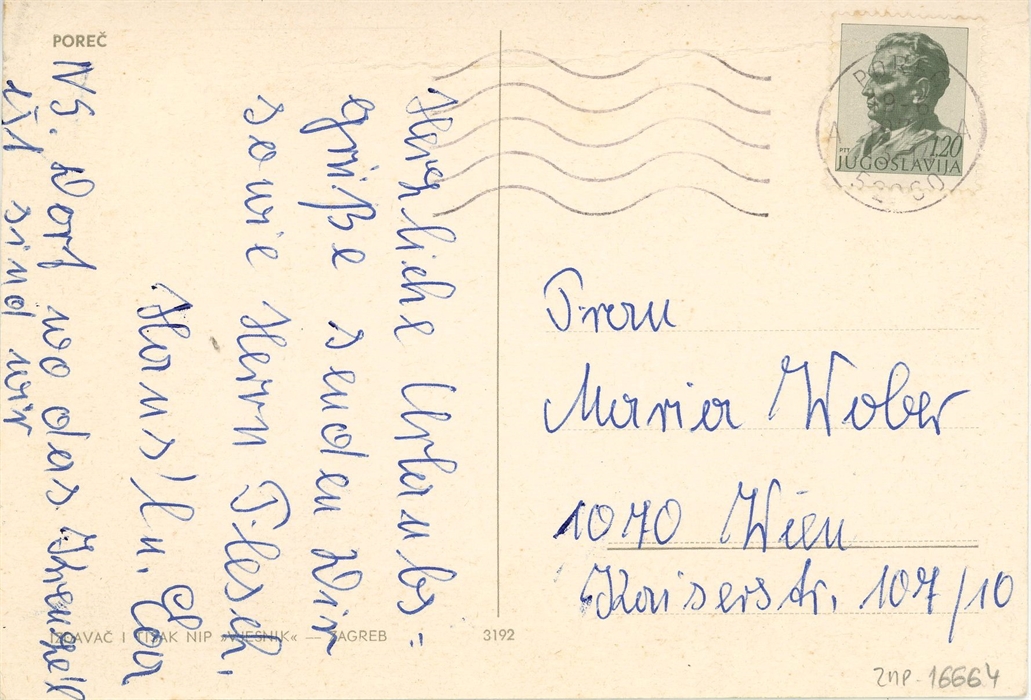 POREČ
Herzliche Urlaubs=
grüße senden Wir
sowie Herrn Flesch.
Hansl u. Eva
NS. Dort wo das Kreuzel
ist sind wir
IZDAVAČ I TISAK NIP »VJESNIK« — ZAGREB
3192
1,20
PTT
JUGOSLAVIJA
Frau
Maria Wober
1070 Wien
Kaiserstr. 107/10
ZMP-16664